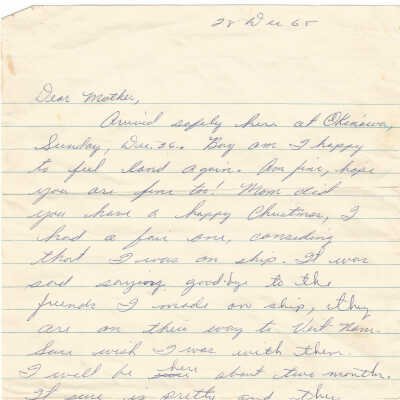 28 Dec 65
Dear Mother,
Arrived safely here at Okinawa,
Sunday, Dec. 26. Boy am I happy
to feel land again. Am fine, hope
you are fine too! Mom did
you have a happy Christmas, I
had a fair one, considing
that I was on ship. It was
sad saying goodbye to the
friends I made on ship, they
are on their way to Viet Nam.
Sure wish I was with them.
I will be here about two months.
It sure is pretty and the